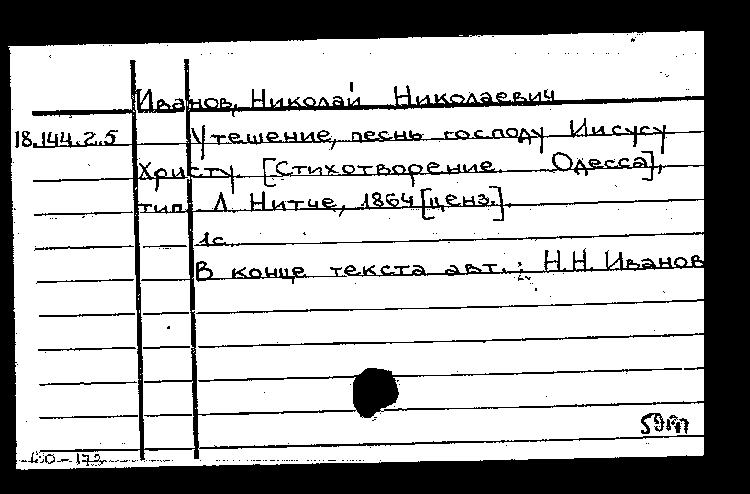 Иванов, Николай Николаевич
18.144.2.5 Утешение, песнь господу Иисусу
Христу. [Стихотворение. Одесса],
тип. Л. Нитче, 1864 [ценз.].
1с.
В конце текста авт.: Н.Н. Иванов